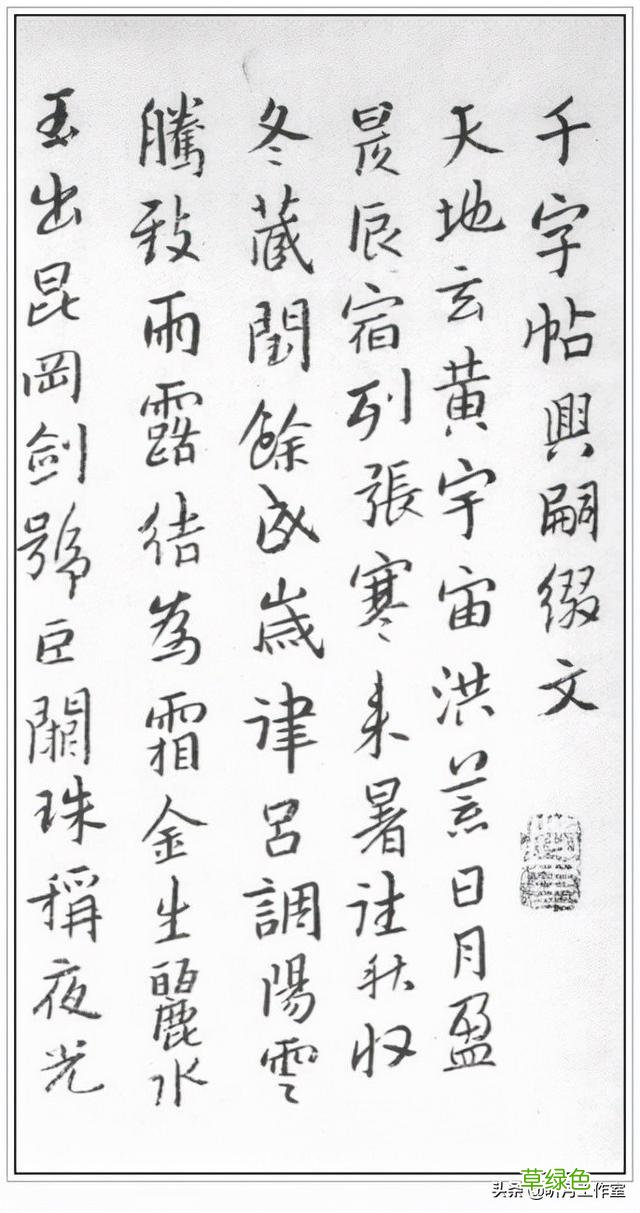 千字帖興嗣綴文
天地玄黄宇宙洪荒日月盈
昃辰宿列張寒来暑往秋収
冬蔵閏餘成歲律吕調陽雲
騰致雨露结為霜金生麗水
玉出昆岡劍號巨闕珠稱夜光
草绿色
头条 @工作室